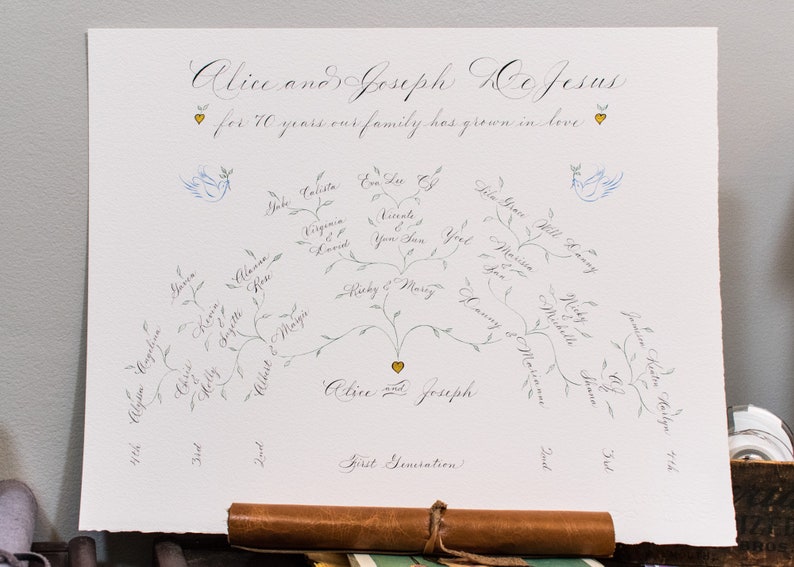 Alice and Joseph De Jesus
for 70 years our family has grown in love
Gabe Calista
Eva Lee CJ
Lila Grace Will Danny
Virginia & David
Vicente & Yun Sun
Yoel
Marissa & Ian
Gavin
Alanna Rose
Kevin & Suzette
Ricky & Marcy
Danny & Marianne
Ricky & Michelle
Jamison Keaton Harlyn
Alyssa Angelina
Chris Holly
Albert & Margie
AJ & Shana
Alice and Joseph
4th 3rd 2nd First Generation 2nd 3rd 4th